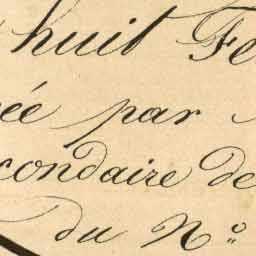 huit Fe
ée par
condaire de
du Nº